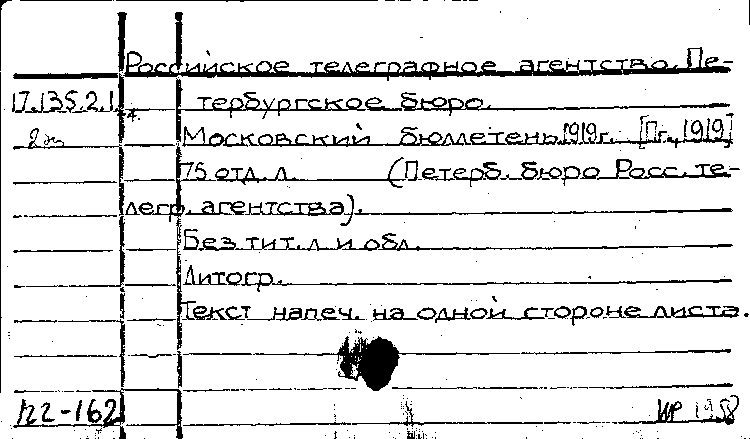 Российское телеграфное агентство. Пе-
17.135.2.1. тербургское бюро.
Московский бюллетень 1919г. [Пг., 1919]
75 отд. л. (Петерб. бюро Росс. те-
легр. агентства).
Без тит. л. и обл.
Литогр.
Текст напеч. на одной стороне листа.
122-162